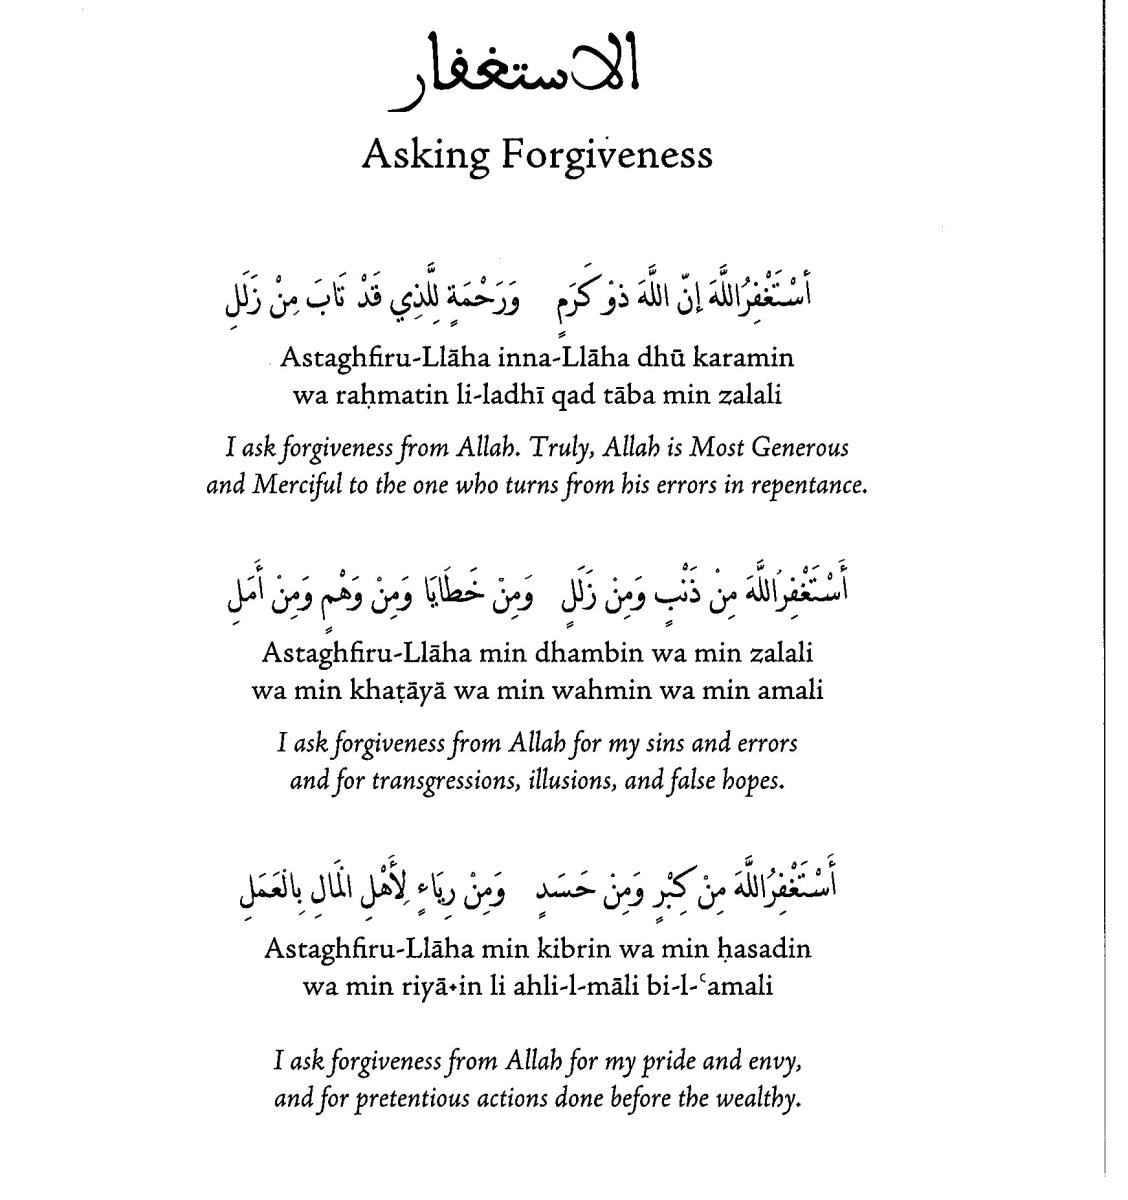 الاستغفار
Asking Forgiveness
أسْتَغْفِرُاللَّهَ إنّ اللَّهَ ذوْ كَرَمٍ وَرَحْمَةٍ لِلَّذِي قَدْ تَابَ مِنْ زَلَلِ
Astaghfiru-Llāha inna-Llāha dhū karamin
wa raḥmatin li-ladhī qad tāba min zalali
I ask forgiveness from Allah. Truly, Allah is Most Generous
and Merciful to the one who turns from his errors in repentance.
أَسْتَغْفِرُاللَّهَ مِنْ ذَنْبٍ وَمِنْ زَلَلٍ وَمِنْ خَطَايَا وَمِنْ وَهْمٍ وَمِنْ أَمَلِ
Astaghfiru-Llāha min dhambin wa min zalali
wa min khaṭāyā wa min wahmin wa min amali
I ask forgiveness from Allah for my sins and errors
and for transgressions, illusions, and false hopes.
أَسْتَغْفِرُاللَّهَ مِنْ كِبْرٍ وَمِنْ حَسَدٍ وَمِنْ رِيَاءٍ لِأَهْلِ الْمَالِ بِالْعَمَلِ
Astaghfiru-Llāha min kibrin wa min ḥasadin
wa min riyā᛫in li ahli-l-māli bi-l-ʿamali
I ask forgiveness from Allah for my pride and envy,
and for pretentious actions done before the wealthy.